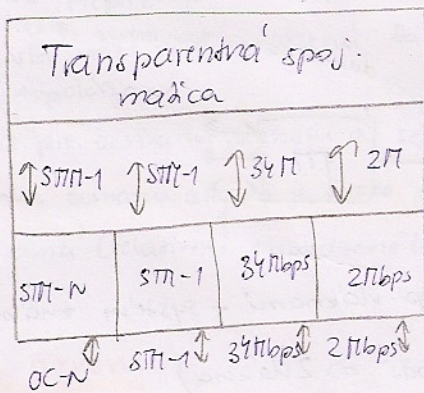 Transparentná spoj.
matica
STM-1 STM-1 34M 2M
STM-N STM-1 34Mbps 2Mbps
OC-N STM-1 34Mbps 2Mbps